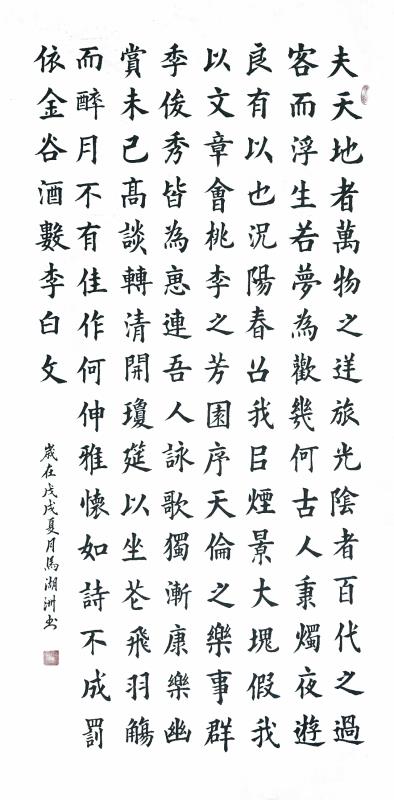 夫天地者萬物之逆旅光陰者百代之過
客而浮生若夢為歡幾何古人秉燭夜遊
良有以也況陽春召我㠯煙景大塊假我
以文章會桃李之芳園序天倫之樂事群
季俊秀皆為惠連吾人詠歌獨漸康樂幽
賞未已髙談轉清開瓊筵以坐花飛羽觴
而醉月不有佳作何伸雅懷如詩不成罰
依金谷酒數李白文
歲在戊戌夏月馬湖洲书